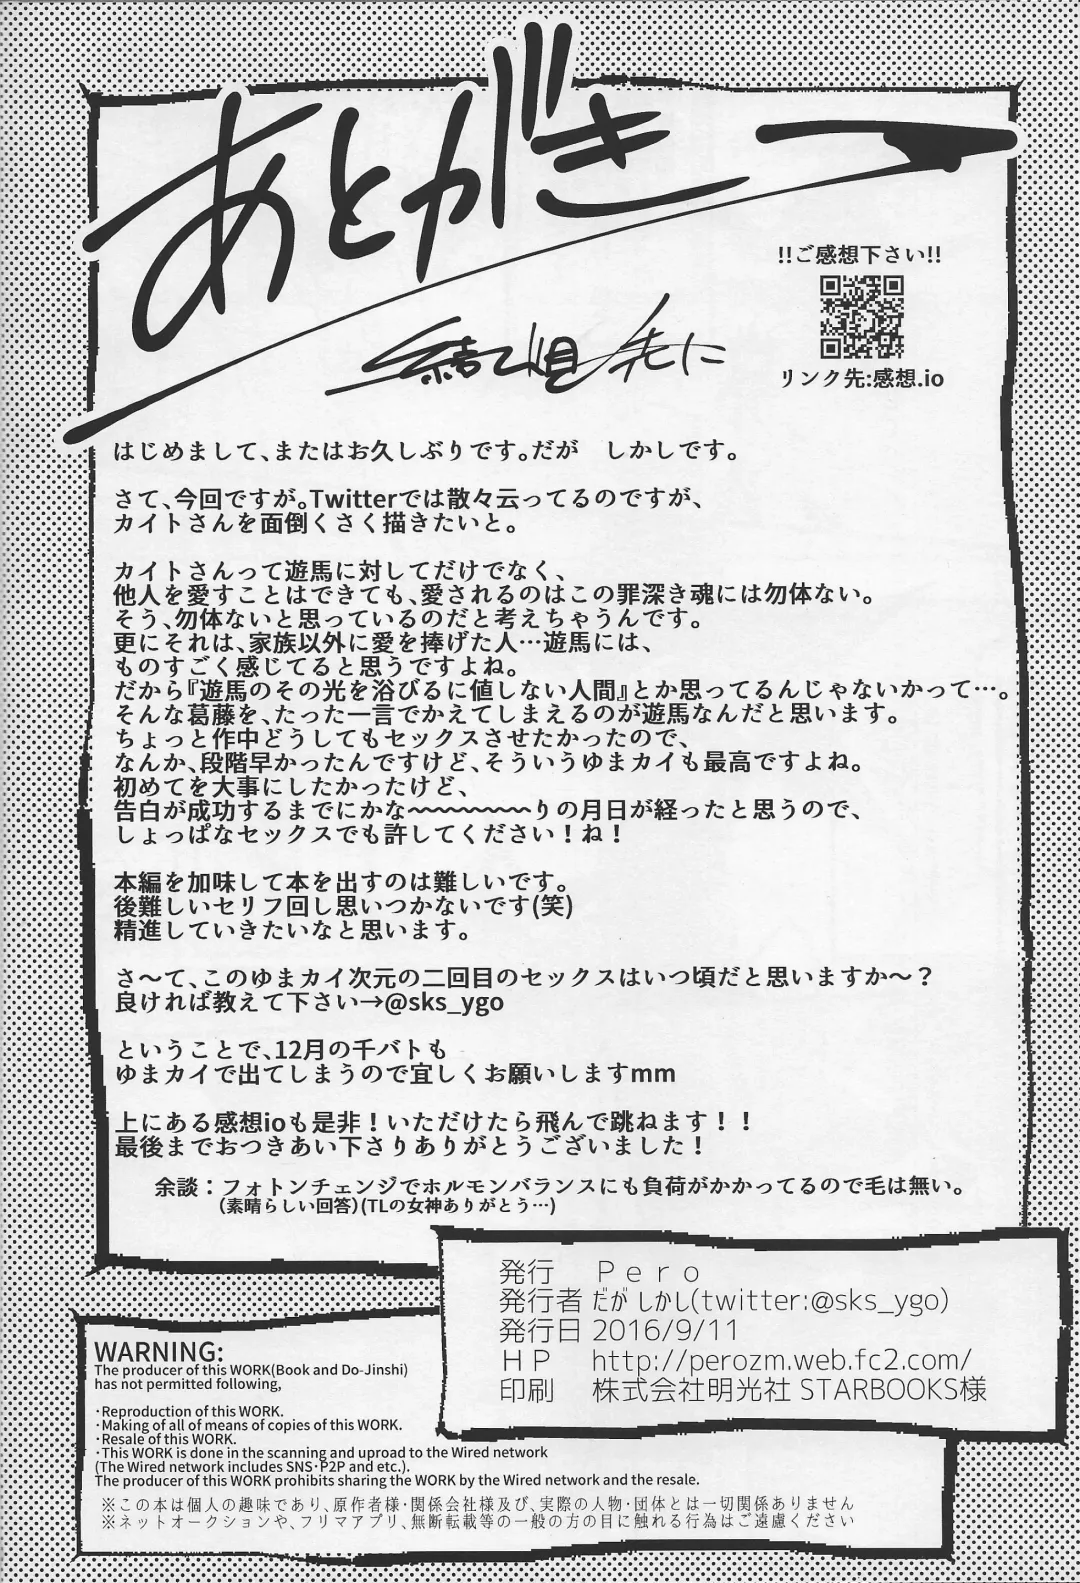 あとがき
!!ご感想下さい!!
リンク先:感想.io
はじめまして、またはお久しぶりです。だが　しかしです。
さて、今回ですが。Twitterでは散々云ってるのですが、
カイトさんを面倒くさく描きたいと。
カイトさんって遊馬に対してだけでなく、
他人を愛すことはできても、愛されるのはこの罪深き魂には勿体ない。
そう、勿体ないと思っているのだと考えちゃうんです。
更にそれは、家族以外に愛を捧げた人…遊馬には、
ものすごく感じてると思うですよね。
だから『遊馬のその光を浴びるに値しない人間』とか思ってるんじゃないかって…。
そんな葛藤を、たった一言でかえてしまえるのが遊馬なんだと思います。
ちょっと作中どうしてもセックスさせたかったので、
なんか、段階早かったんですけど、そういうゆまカイも最高ですよね。
初めてを大事にしたかったけど、
告白が成功するまでにかな〜〜〜〜〜〜〜〜りの月日が経ったと思うので、
しょっぱなセックスでも許してください！ね！
本編を加味して本を出すのは難しいです。
後難しいセリフ回し思いつかないです(笑)
精進していきたいなと思います。
さ〜て、このゆまカイ次元の二回目のセックスはいつ頃だと思いますか〜？
良ければ教えて下さい→@sks_ygo
ということで、12月の千バトも
ゆまカイで出てしまうので宜しくお願いしますmm
上にある感想ioも是非！いただけたら飛んで跳ねます！！
最後までおつきあい下さりありがとうございました！
余談：フォトンチェンジでホルモンバランスにも負荷がかかってるので毛は無い。
(素晴らしい回答)(TLの女神ありがとう…)
発行　Ｐｅｒｏ
発行者 だが しかし(twitter:@sks_ygo)
発行日 2016/9/11
ＨＰ　http://perozm.web.fc2.com/
印刷　株式会社明光社 STARBOOKS様
WARNING:
The producer of this WORK(Book and Do-Jinshi)
has not permitted following,
･Reproduction of this WORK.
･Making of all of means of copies of this WORK.
･Resale of this WORK.
･This WORK is done in the scanning and uproad to the Wired network
(The Wired network includes SNS･P2P and etc.).
The producer of this WORK prohibits sharing the WORK by the Wired network and the resale.
※この本は個人の趣味であり、原作者様・関係会社様及び、実際の人物・団体とは一切関係ありません
※ネットオークションや、フリマアプリ、無断転載等の一般の方の目に触れる行為はご遠慮ください